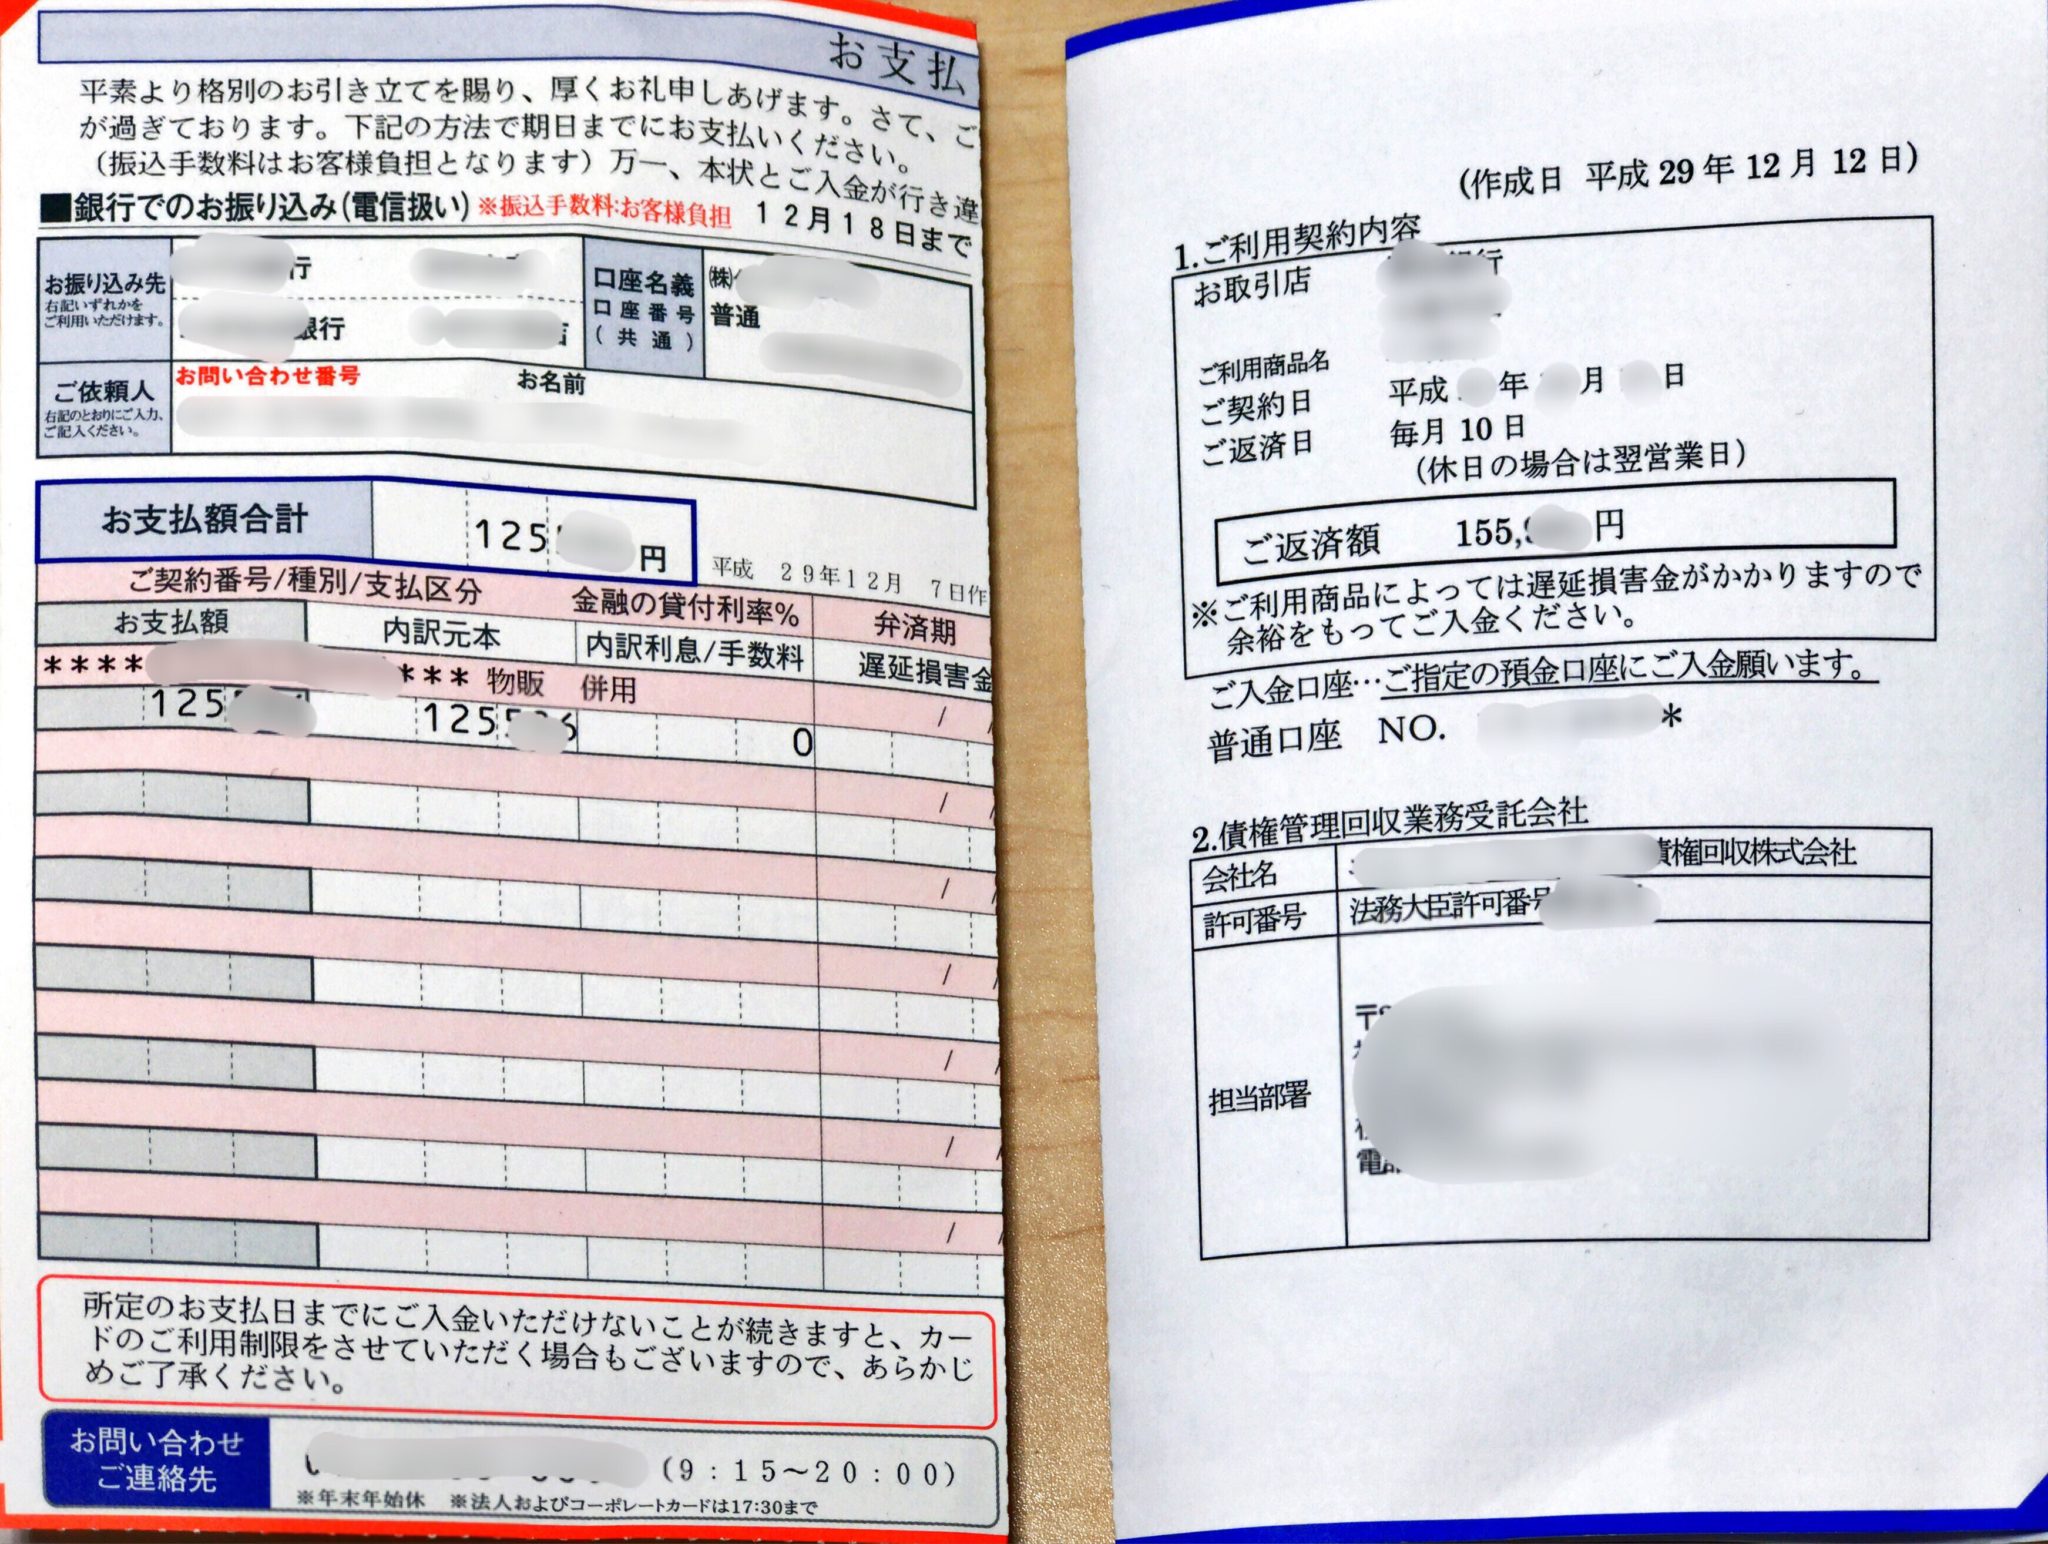 お支払
平素より格別のお引き立てを賜り、厚くお礼申しあげます。さて、ご
が過ぎております。下記の方法で期日までにお支払いください。
（振込手数料はお客様負担となります）万一、本状とご入金が行き違
■銀行でのお振り込み（電信扱い） ※振込手数料：お客様負担 12月18日まで
お振り込み先
右記いずれかを
ご利用いただけます。
行
銀行
口座名義
口座番号
（共通）
㈱
普通
ご依頼人
右記のとおりにご入力、
ご記入ください。
お問い合わせ番号 お名前
お支払額合計 125 円
平成 29年12月 7日作
ご契約番号/種別/支払区分 金融の貸付利率% 弁済期
お支払額 内訳元本 内訳利息/手数料 遅延損害金
**** *** 物販 併用 /  /
125 125 6 0
/
/
/
/
/
/
所定のお支払日までにご入金いただけないことが続きますと、カー
ドのご利用制限をさせていただく場合もございますので、あらかじ
めご了承ください。
お問い合わせ
ご連絡先
（9：15～20：00）
※年末年始休 ※法人およびコーポレートカードは17:30まで
(作成日 平成 29 年 12 月 12 日)
1.ご利用契約内容
お取引店 銀行
ご利用商品名
ご契約日 平成 年 月 日
ご返済日 毎月 10 日
(休日の場合は翌営業日)
ご返済額 155, 円
※ご利用商品によっては遅延損害金がかかりますので
余裕をもってご入金ください。
ご入金口座…ご指定の預金口座にご入金願います。
普通口座 NO. *
2.債権管理回収業務受託会社
会社名 債権回収株式会社
許可番号 法務大臣許可番号
担当部署
〒
電話